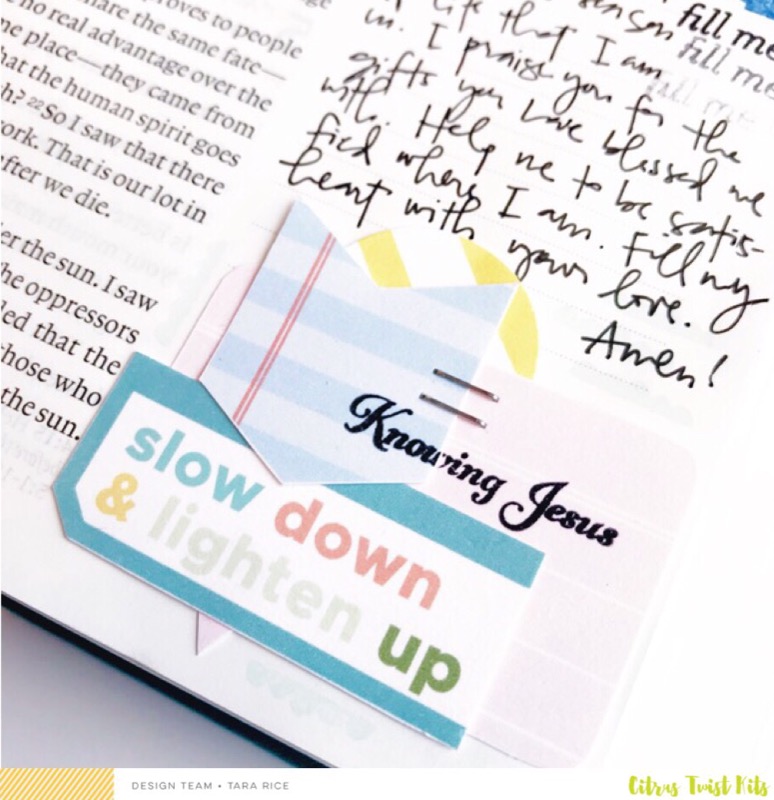 roves to people
hare the same fate—
no real advantage over the
ne place—they came from
hat the human spirit goes
h? 22So I saw that there
ork. That is our lot in
after we die.
er the sun. I saw
he oppressors
led that the
hose who
the sun.
fill me
fill me
fill me
life that I am
in. I praise you for the
gifts you have blessed me
with. Help me to be satis-
fied where I am. Fill my
heart with your love.
Amen!
Knowing Jesus
slow down
& lighten
up
DESIGN TEAM • TARA RICE
Citrus Twist Kits